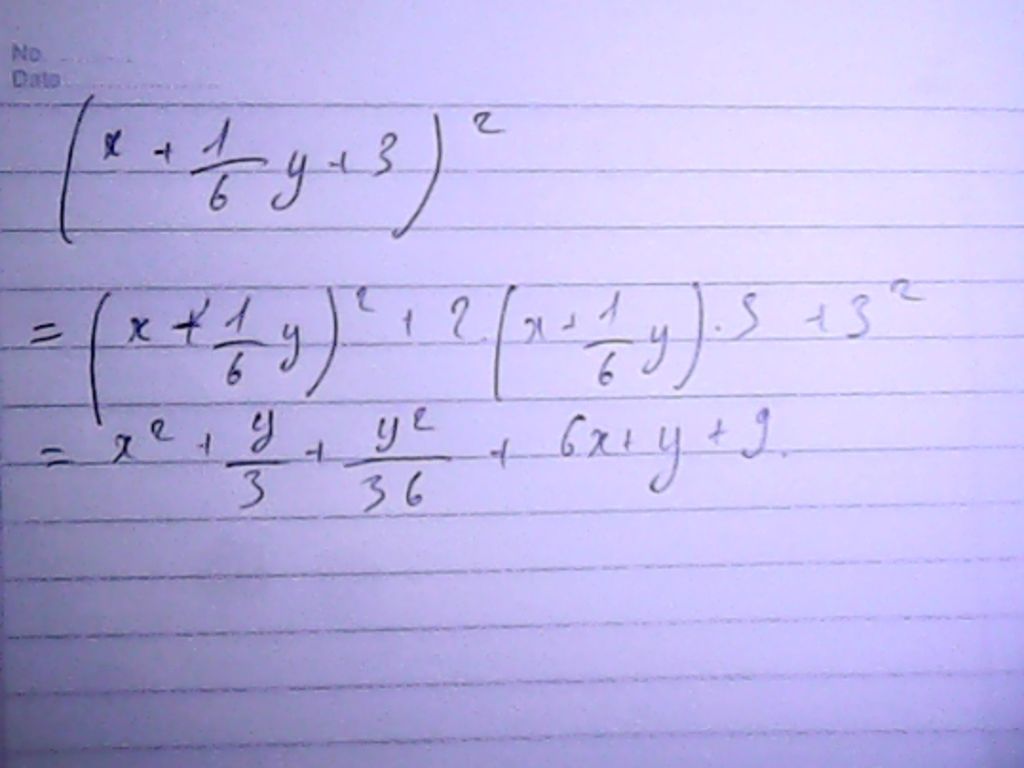 No
Date
(x + 1/6 y + 3)²
= (x + 1/6 y)² + 2.(x + 1/6 y).3 + 3²
= x² + y/3 + y²/36 + 6x + y + 9.